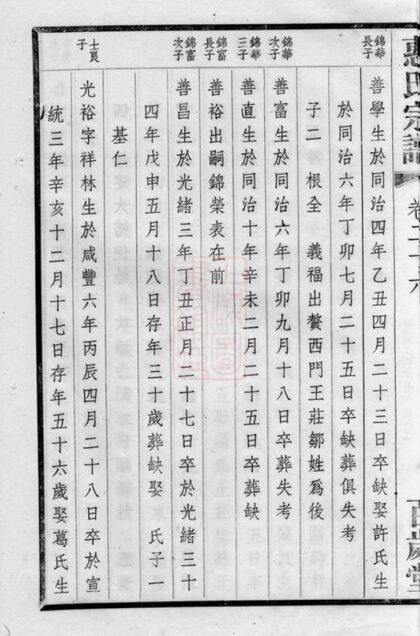 惠氏宗譜
卷二十六
百歲堂
錦華長子
善學生於同治四年乙丑四月二十三日卒缺娶許氏生
於同治六年丁卯七月二十五日卒缺葬俱失考
子二 根全 義福出贅西門王莊鄒姓爲後
錦華次子
善富生於同治六年丁卯九月十八日卒葬失考
錦華三子
善直生於同治十年辛未二月二十五日卒葬缺
錦富長子
善裕出嗣錦榮表在前
錦富次子
善昌生於光緒三年丁丑正月二十七日卒於光緒三十
四年戊申五月十八日存年三十歲葬缺娶 氏子一
基仁
士良子
光裕字祥林生於咸豐六年丙辰四月二十八日卒於宣
統三年辛亥十二月十七日存年五十六歲娶葛氏生